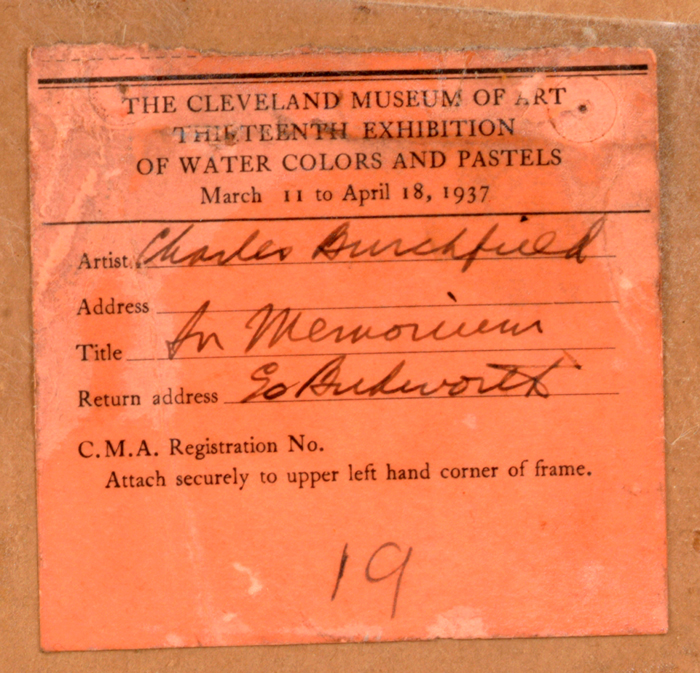 THE CLEVELAND MUSEUM OF ART
THIRTEENTH EXHIBITION
OF WATER COLORS AND PASTELS
March 11 to April 18, 1937
Artist Charles Burchfield
Address
Title In Memorium
Return address Budworth
C.M.A. Registration No.
Attach securely to upper left hand corner of frame.
19